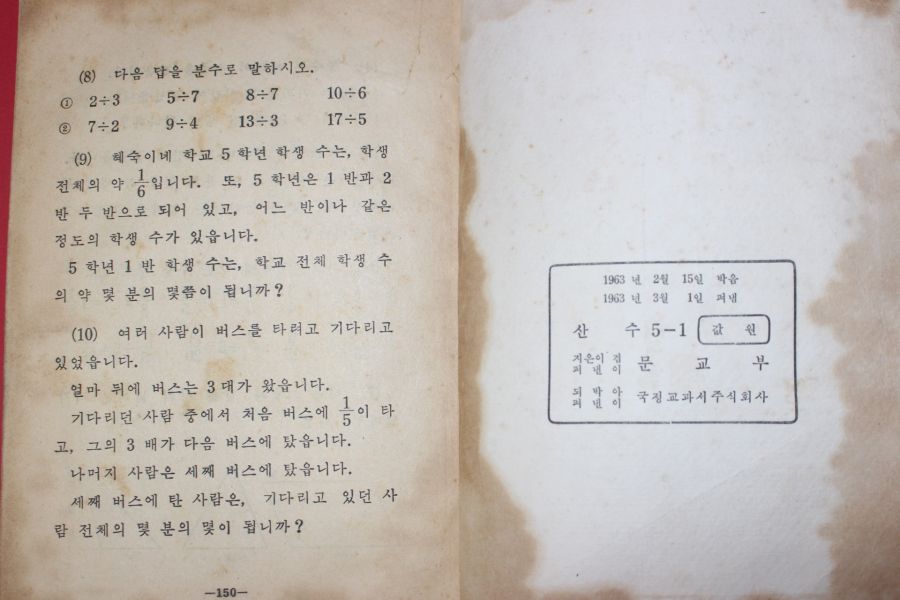 (8) 다음 답을 분수로 말하시오.
① 2÷3 5÷7 8÷7 10÷6
② 7÷2 9÷4 13÷3 17÷5
(9) 혜숙이네 학교 5 학년 학생 수는, 학생
전체의 약 1/6입니다. 또, 5 학년은 1 반과 2
반 두 반으로 되어 있고, 어느 반이나 같은
정도의 학생 수가 있읍니다.
5 학년 1 반 학생 수는, 학교 전체 학생 수
의 약 몇 분의 몇쯤이 됩니까?
(10) 여러 사람이 버스를 타려고 기다리고
있었읍니다.
얼마 뒤에 버스는 3 대가 왔읍니다.
기다리던 사람 중에서 처음 버스에 1/5이 타
고, 그의 3 배가 다음 버스에 탔읍니다.
나머지 사람은 세째 버스에 탔읍니다.
세째 버스에 탄 사람은, 기다리고 있던 사
람 전체의 몇 분의 몇이 됩니까?
—150—
1963 년 2월 15일 박음
1963 년 3월 1일 펴냄
산 수 5-1 값 원
지은이 겸
펴낸이 문교부
되박아
펴낸이 국정교과서주식회사